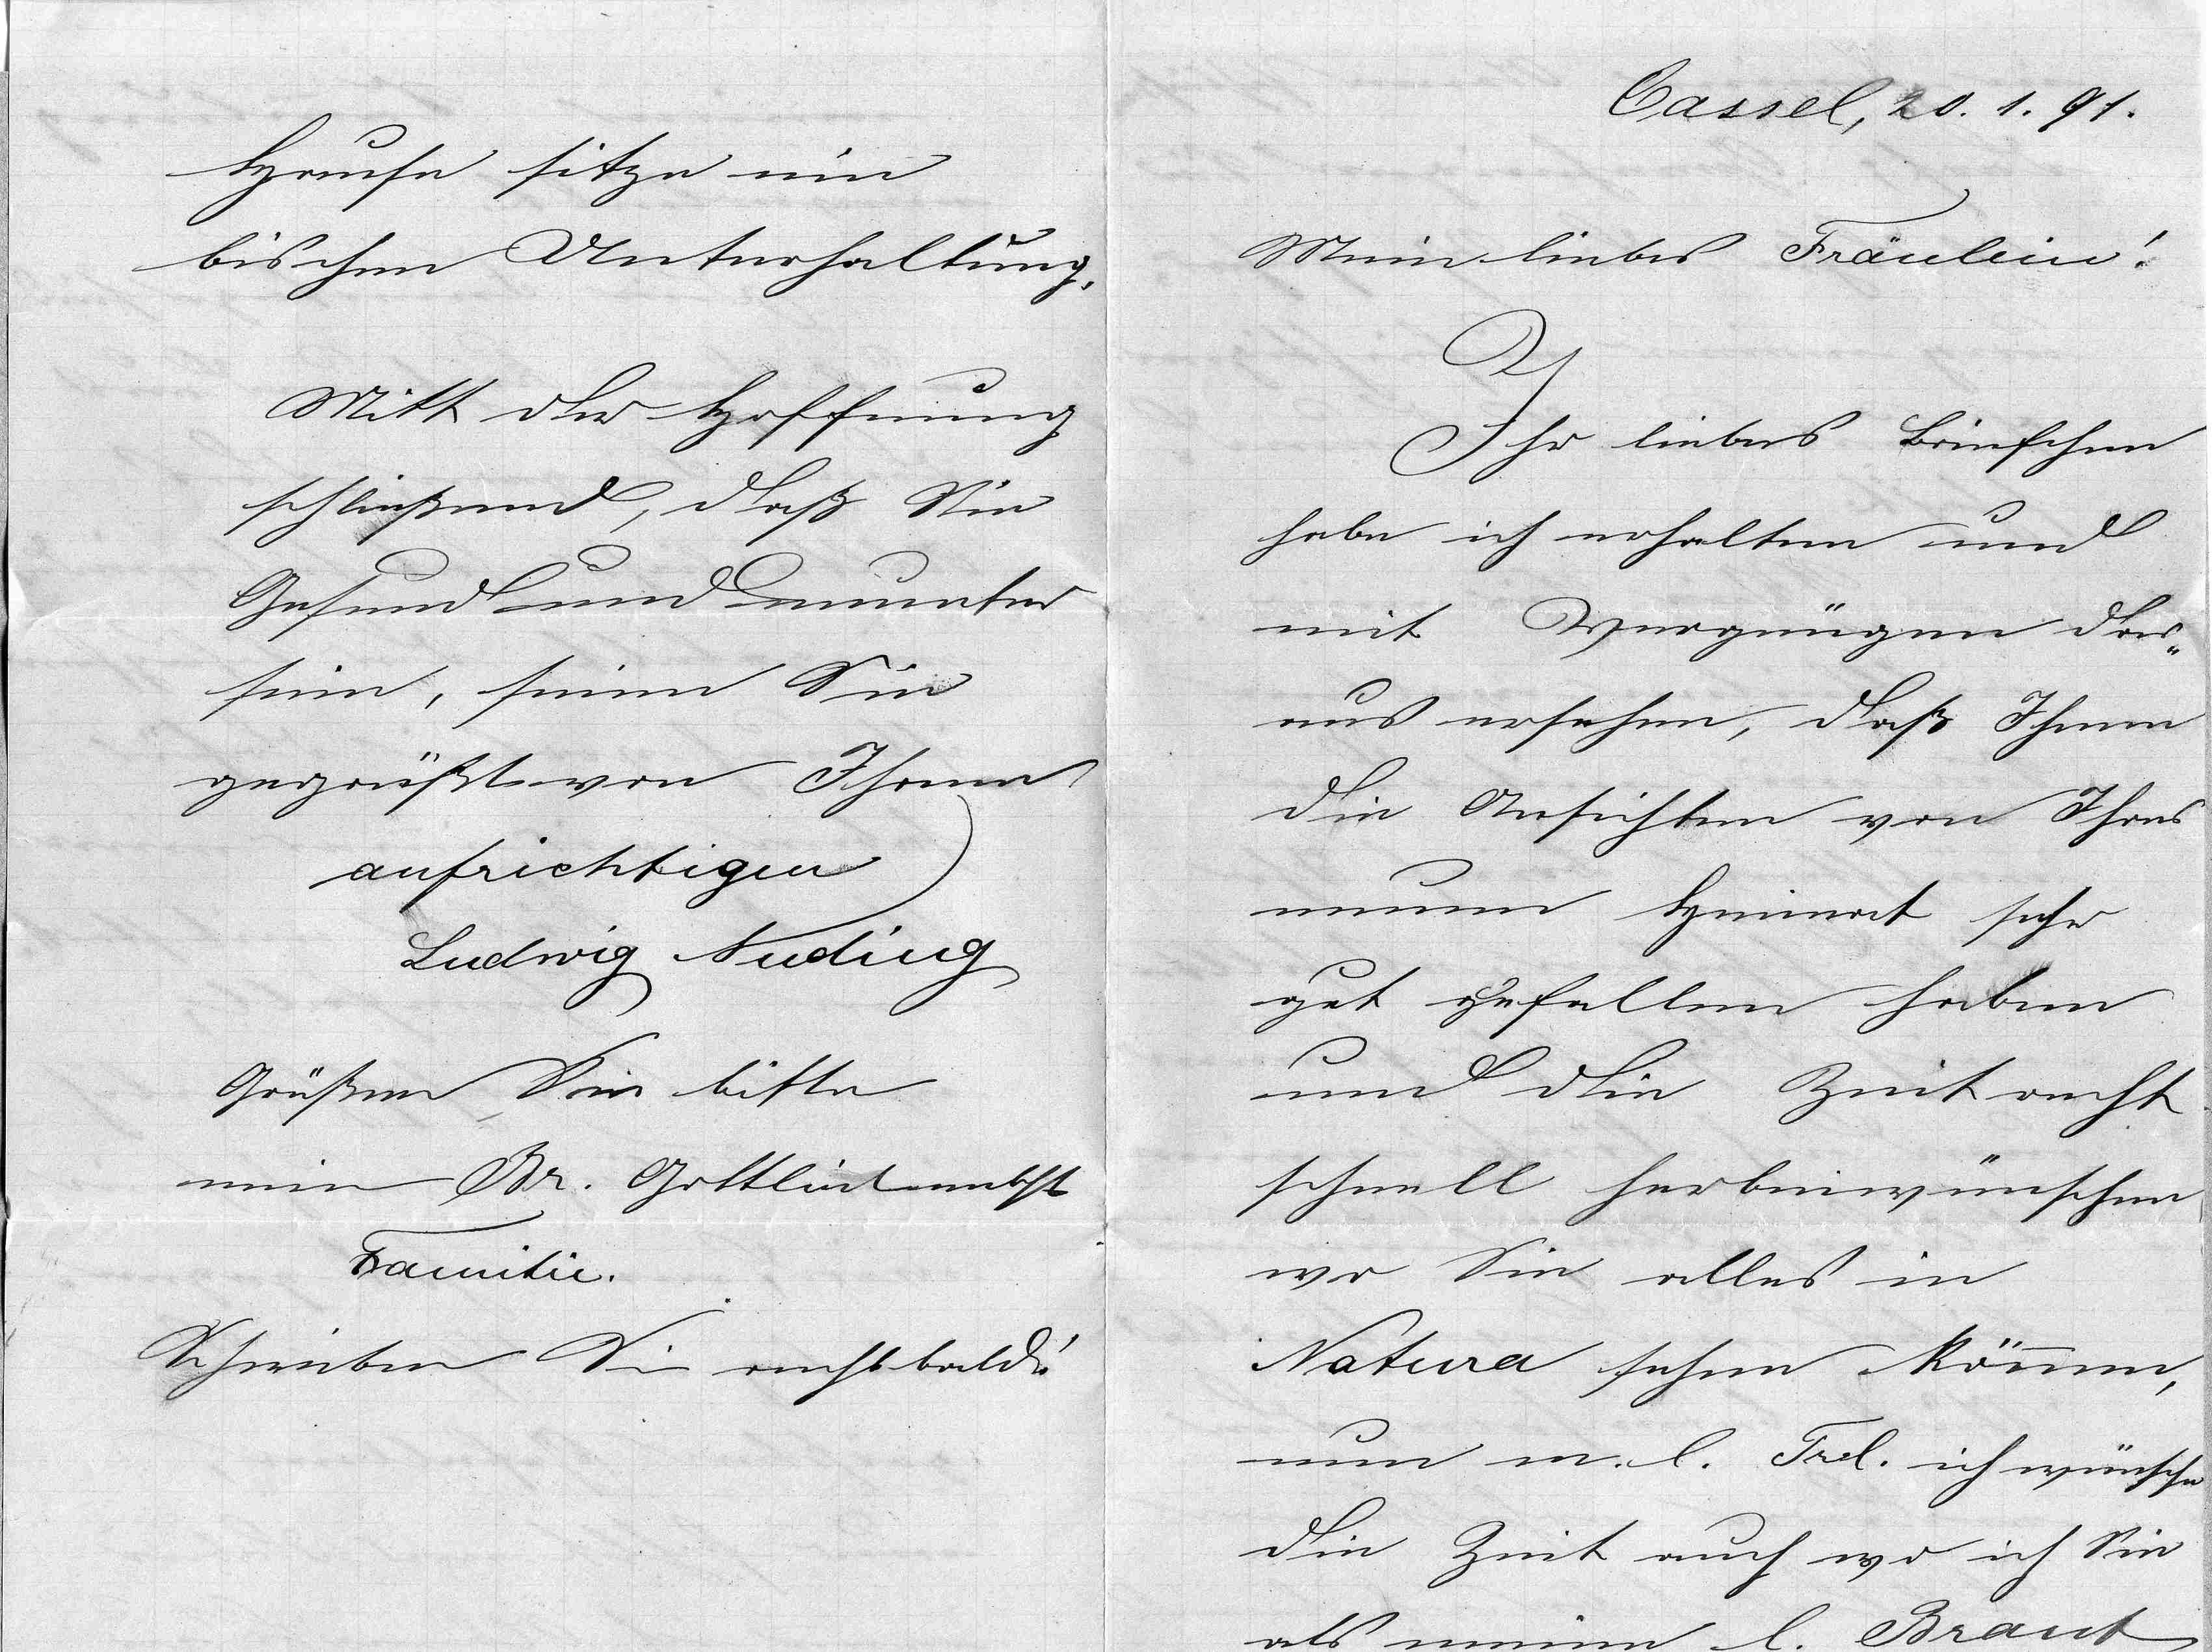 Cassel, 20. 1. 91.
Mein liebes Fräulein!
Ihr liebes Briefchen
habe ich erhalten und
mit Vergnügen dar„
aus ersehen, daß Ihnen
die Ansichten von Ihrer
neuen Heimat sehr
gut gefallen haben
und die Zeit recht
schnell herbeiwünschen
wo Sie alles in
Natura sehen können,
nun m. l. Frl. ich wünsche
die Zeit auch wo ich Sie
als meine l. Braut
Hause sitze ein
bischen Unterhaltung.
Mitt der Hoffnung
schließend, daß Sie
Gesund und munter
sein, seien Sie
gegrüßt von Ihrem
aufrichtigen
Ludwig Nuding
Grüßen Sie bitte
mein Br. Gottlieb nebst
Familie.
Schreiben Sie recht bald!